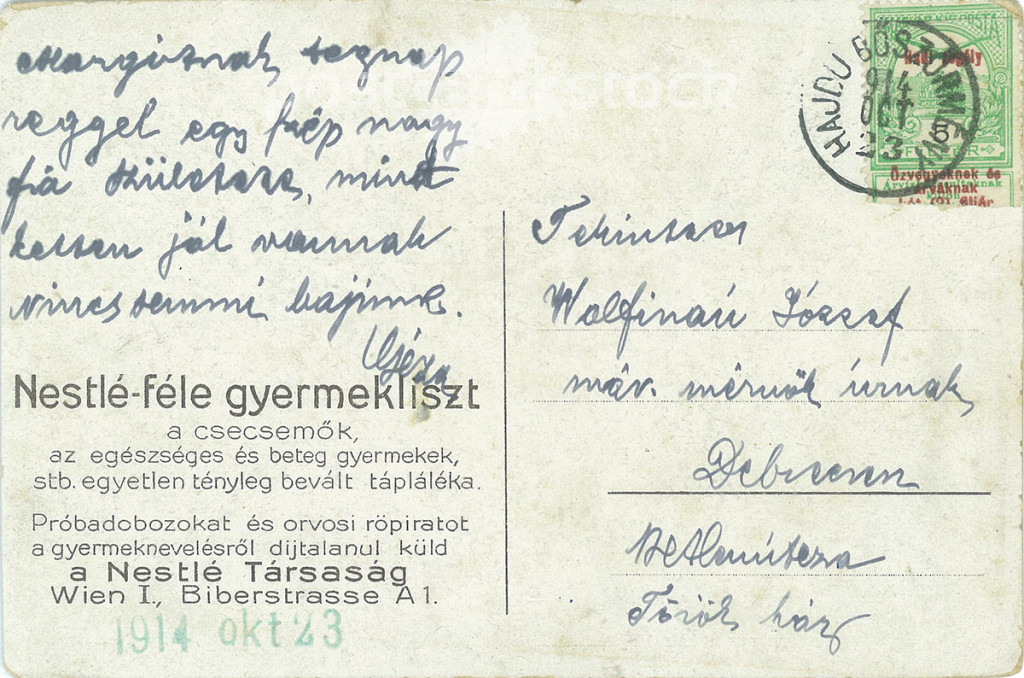 Margitnak tegnap
reggel egy szép nagy
fia született, mind
ketten jól vannak
nincs semmi bajunk.
Géza
Nestlé-féle gyermekliszt
a csecsemők,
az egészséges és beteg gyermekek,
stb. egyetlen tényleg bevált tápláléka.
Próbadobozokat és orvosi röpiratot
a gyermeknevelésről dijtalanul küld
a Nestlé Társaság
Wien I., Biberstrasse A 1.
1914 okt 23
HAJDU BÖSZÖRMÉNY
914
OKT
23
MAGYAR KIR. POSTA
Hadi segély
Özvegyeknek és
árváknak
két (2) fillér
Tekintetes
József
máv. mérnök úrnak
Debreczen
Bethlenutcza
Török ház